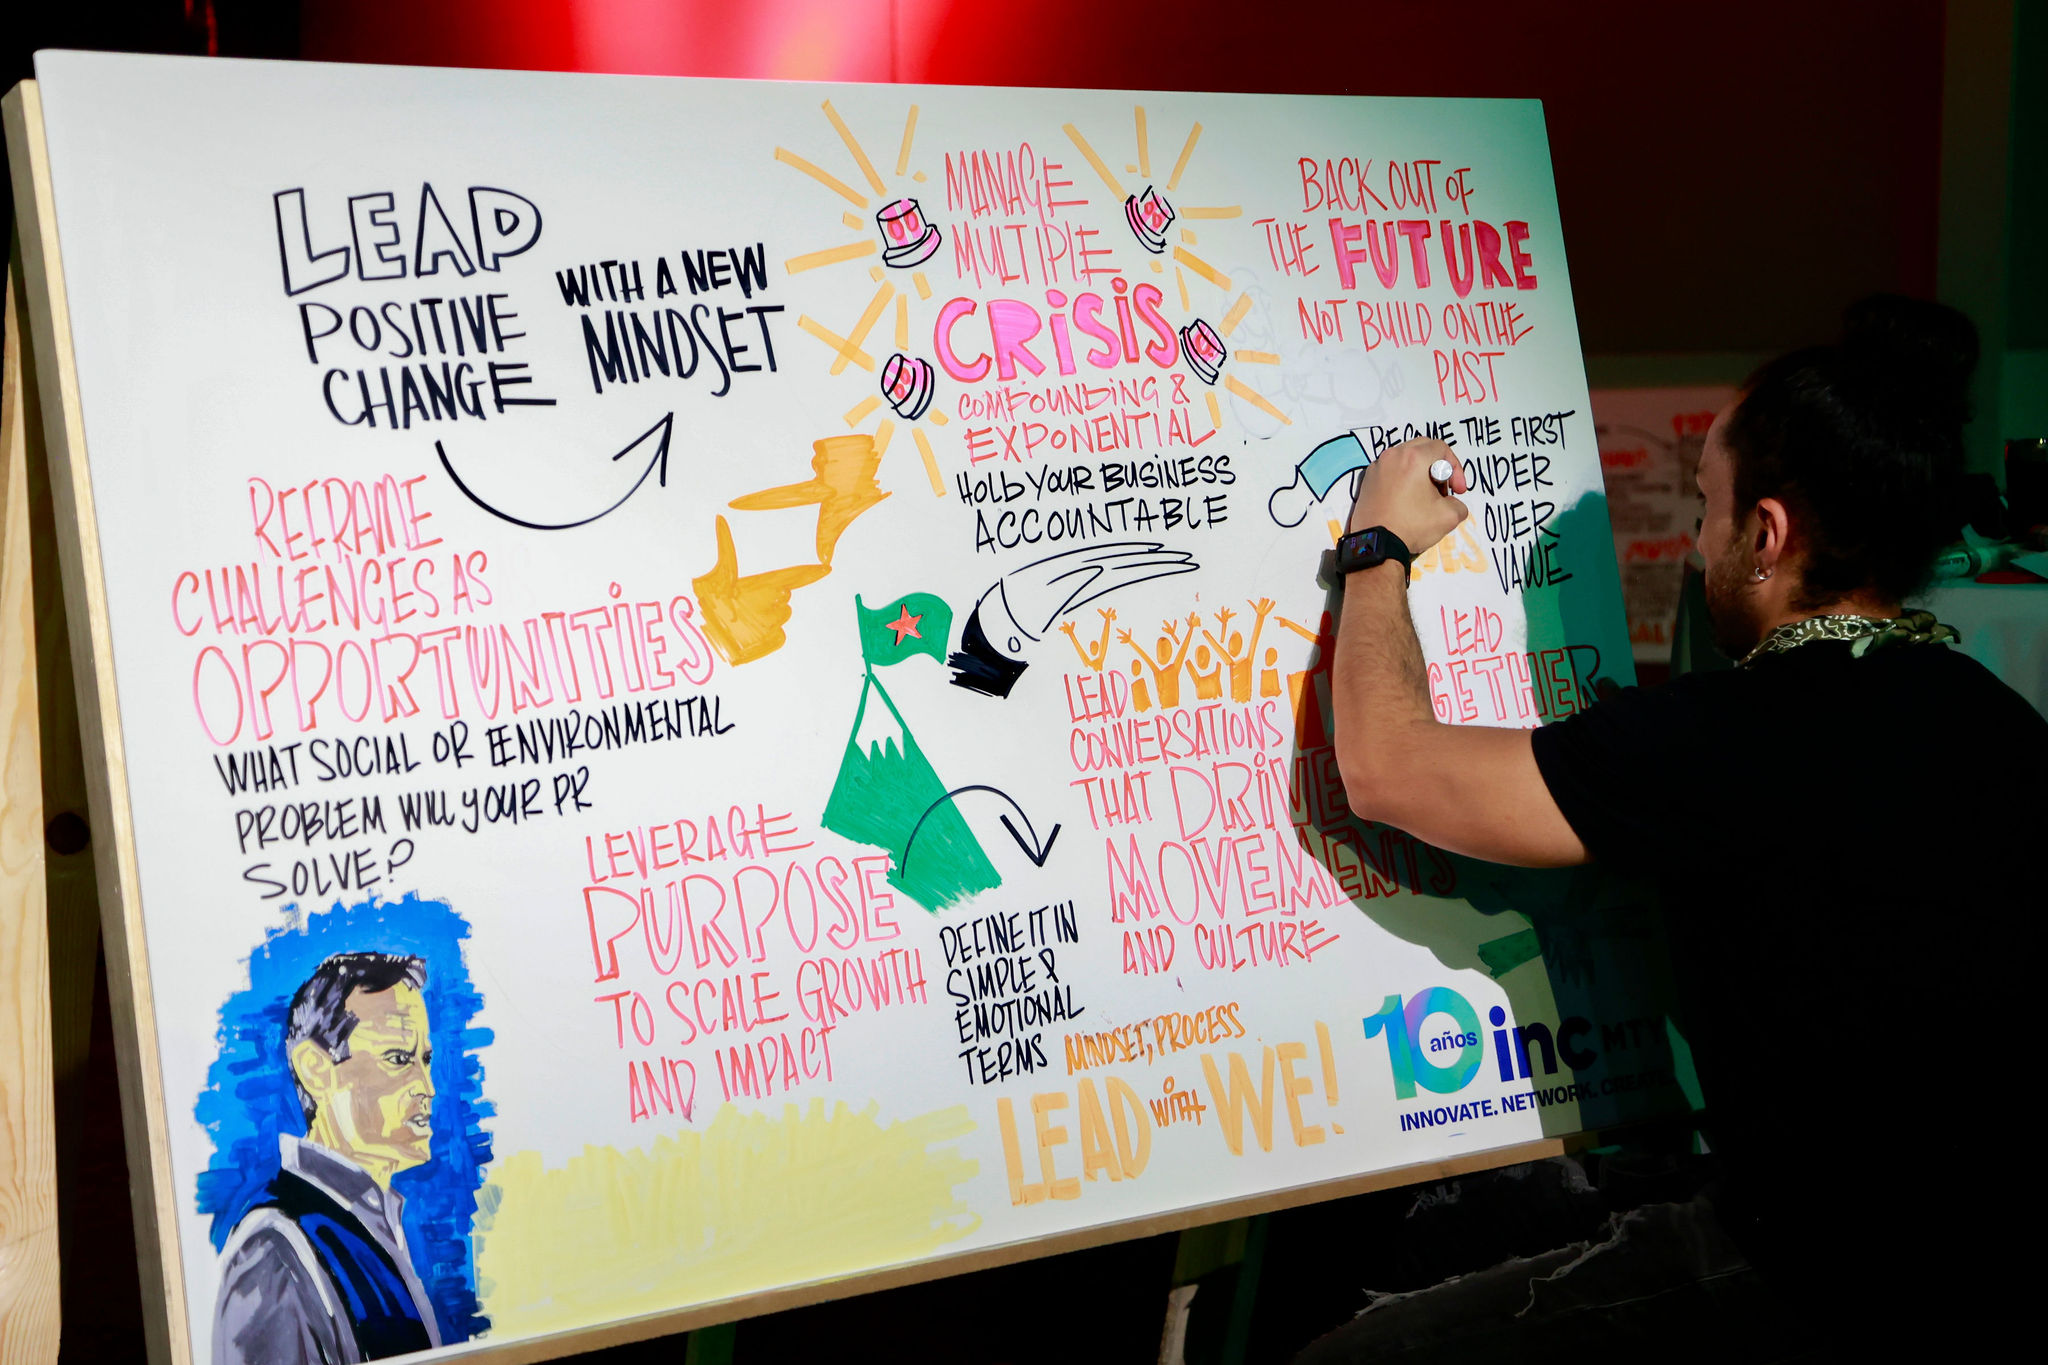 LEAP
POSITIVE
CHANGE
WITH A NEW
MINDSET
REFRAME
CHALLENGES AS
OPPORTUNITIES
WHAT SOCIAL OR EENVIRONMENTAL
PROBLEM WILL YOUR PR
SOLVE?
LEVERAGE
PURPOSE
TO SCALE GROWTH
AND IMPACT
MANAGE
MULTIPLE
CRISIS
COMPOUNDING &
EXPONENTIAL
HOLD YOUR BUSINESS
ACCOUNTABLE
DEFINE IT IN
SIMPLE &
EMOTIONAL
TERMS
LEAD
CONVERSATIONS
THAT DRIVE
MOVEMENTS
AND CULTURE
MINDSET, PROCESS
LEAD WITH WE!
BACK OUT OF
THE FUTURE
NOT BUILD ON THE
PAST
BECOME THE FIRST
ONDER
OVER
VALUE
LEAD
GETHER
10 años inc MTY
INNOVATE. NETWORK. CREATE.